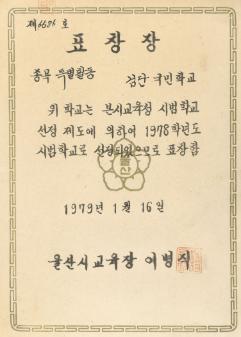 제6686호
표창장
종목 특별활동 검단 국민학교
위 학교는 본시교육청 시범학교
선정 제도에 의하여 1978학년도
시범학교로 선정되었으므로 표창함
울산
1979년 1월 16일
울산시교육장 이병직